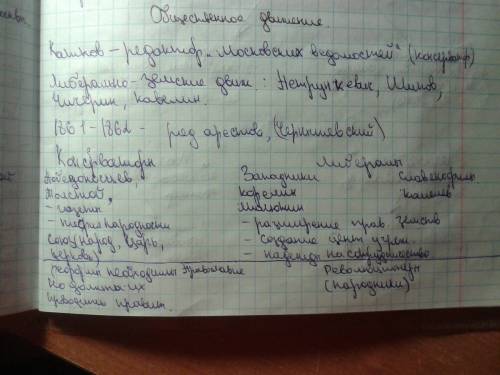 Общественное движение.
Катков – редактор „Московских ведомостей" (консерватор)
Либерально-земские движ.: Петрункевич, Шипов,
Чичерин, Кавелин.
1861-1862 - ряд арестов, (Чернышевский)
Консерваторы Либералы
Победоносцев, Западники Славянофилы
Толстой, Корелин Кошелев
– газеты Милютин
– теория народности – расширение прав земств
Союз народ, царь, – создание центр
церковь) – надежды на сотрудничество
реформы необходимы Православие Революционеры
Но должно их (народники)
проводить правит.